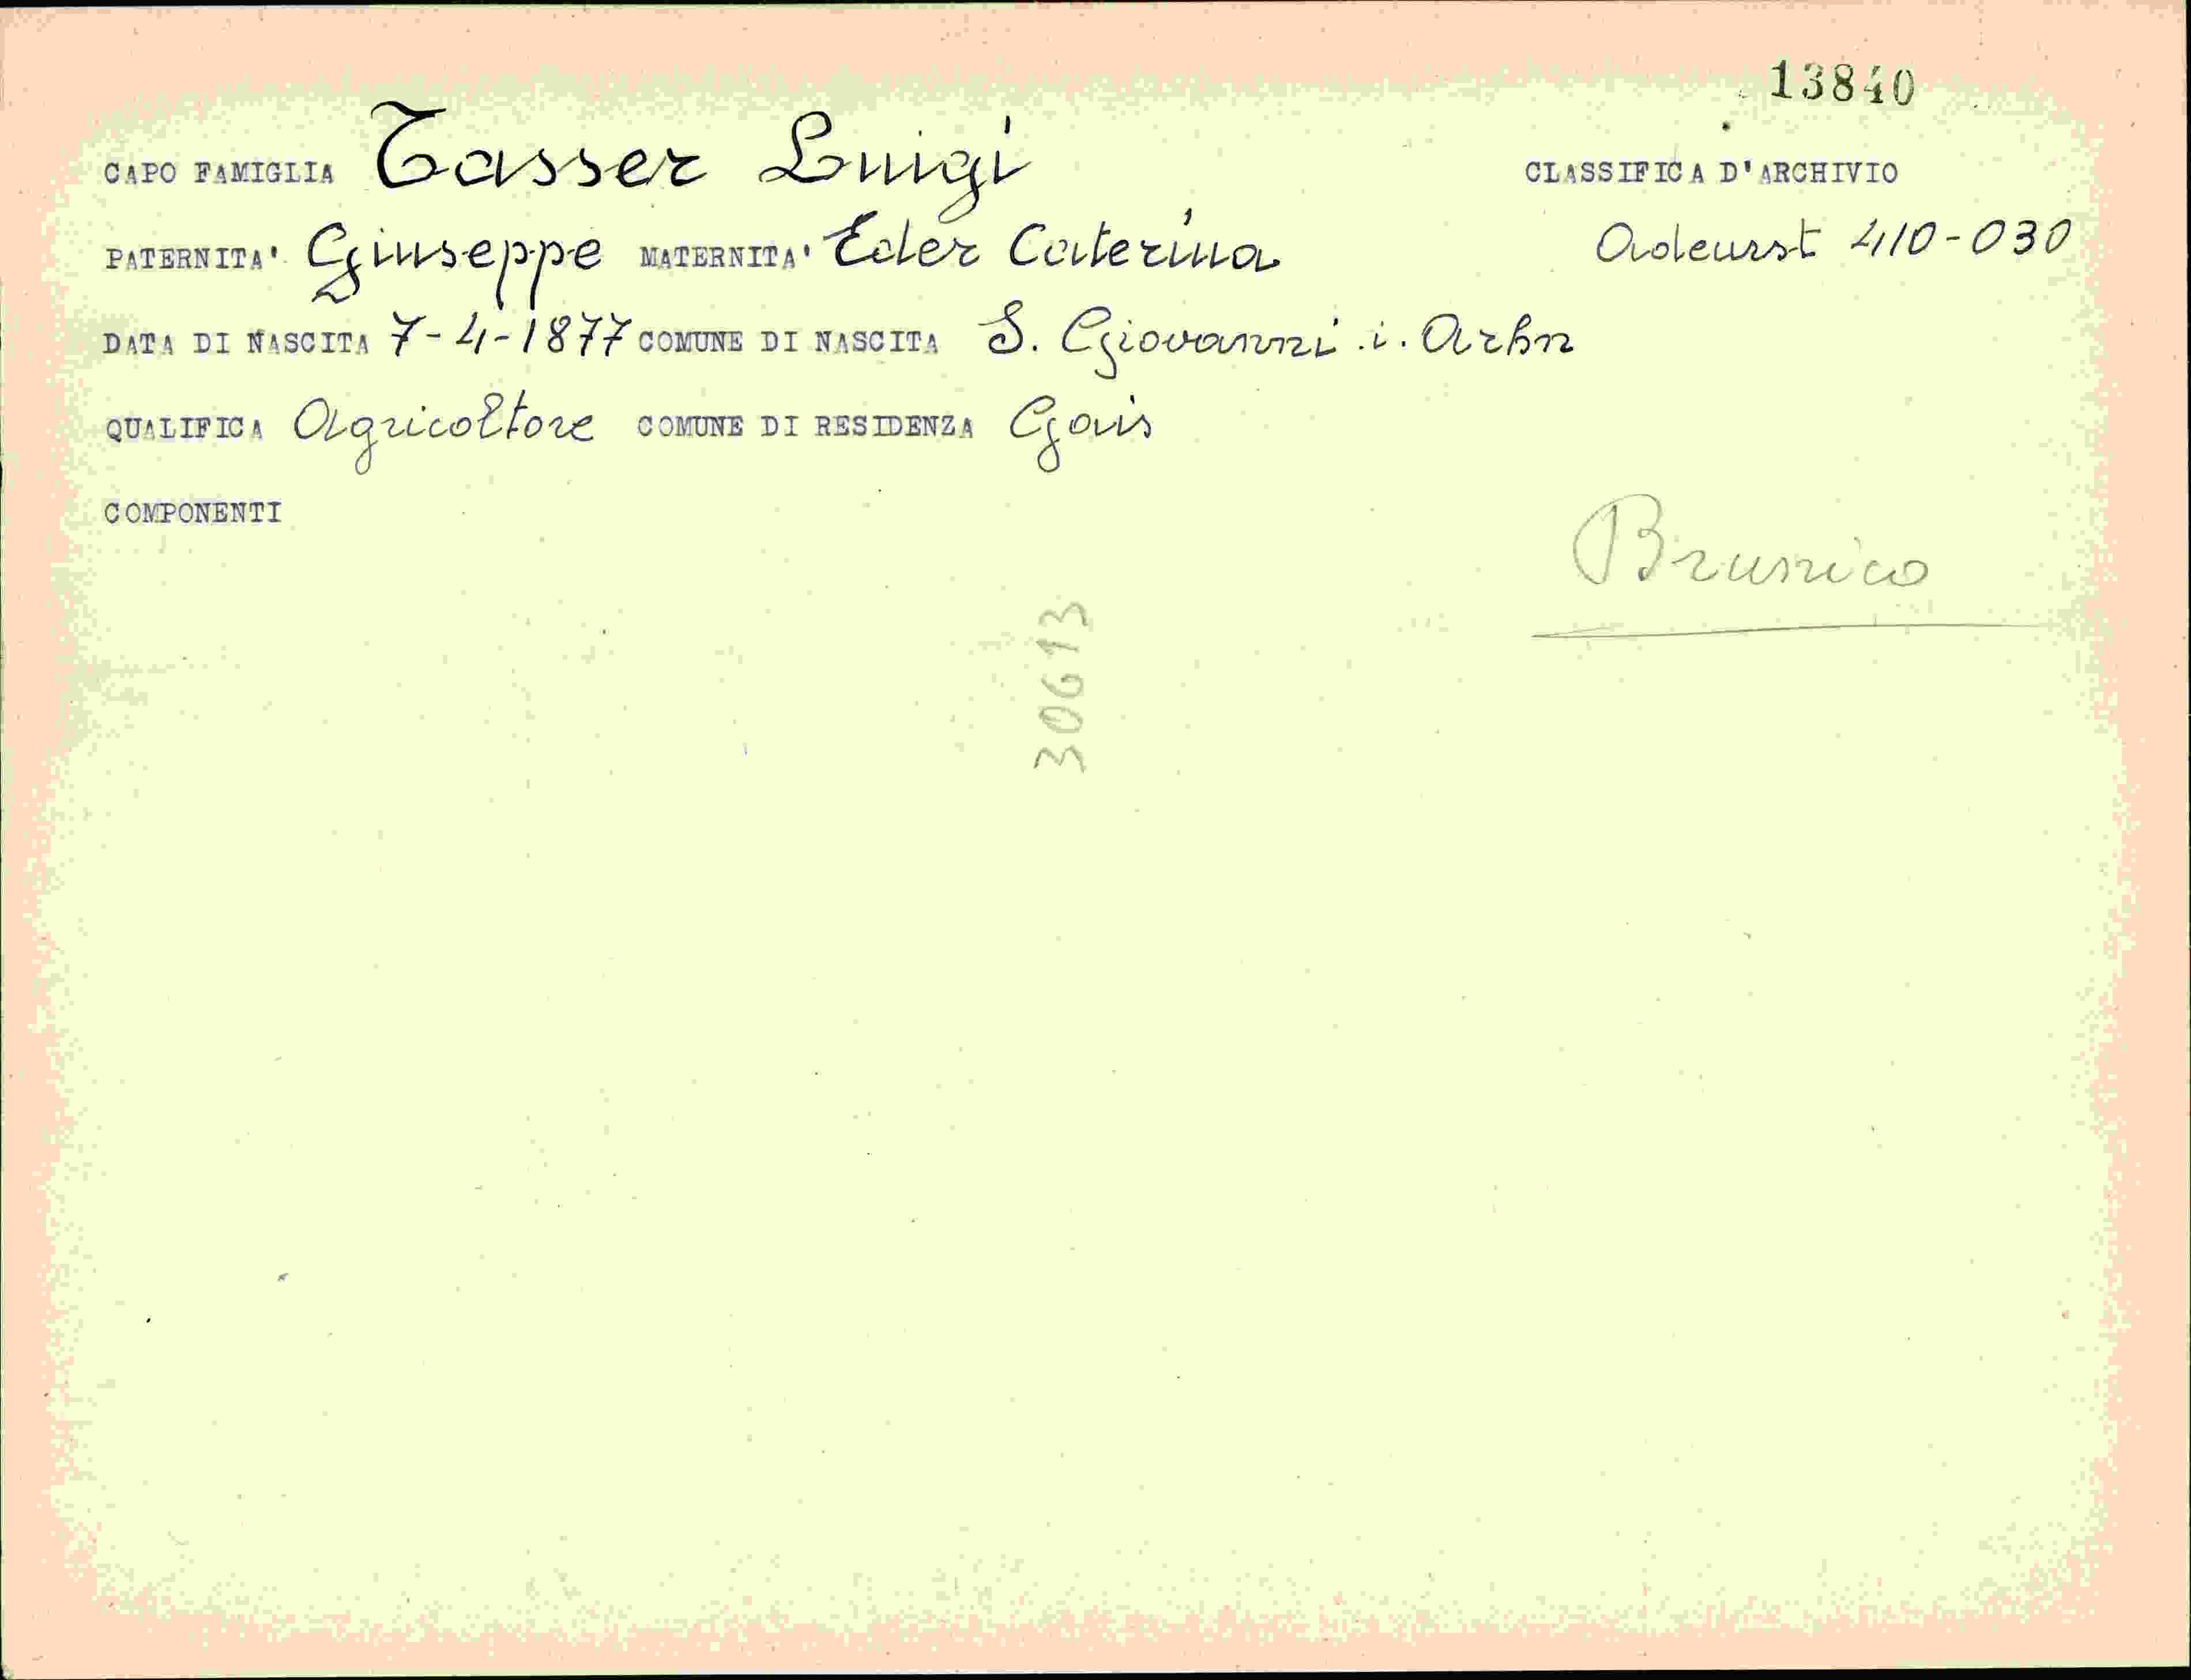 13840
CAPO FAMIGLIA Tasser Luigi
CLASSIFICA D'ARCHIVIO
PATERNITA' Giuseppe MATERNITA' Eder Caterina
Adeurst 410-030
DATA DI NASCITA 7-4-1877 COMUNE DI NASCITA S. Giovanni i. Arhn
QUALIFICA Agricoltore COMUNE DI RESIDENZA Gais
COMPONENTI
Brunico
30613